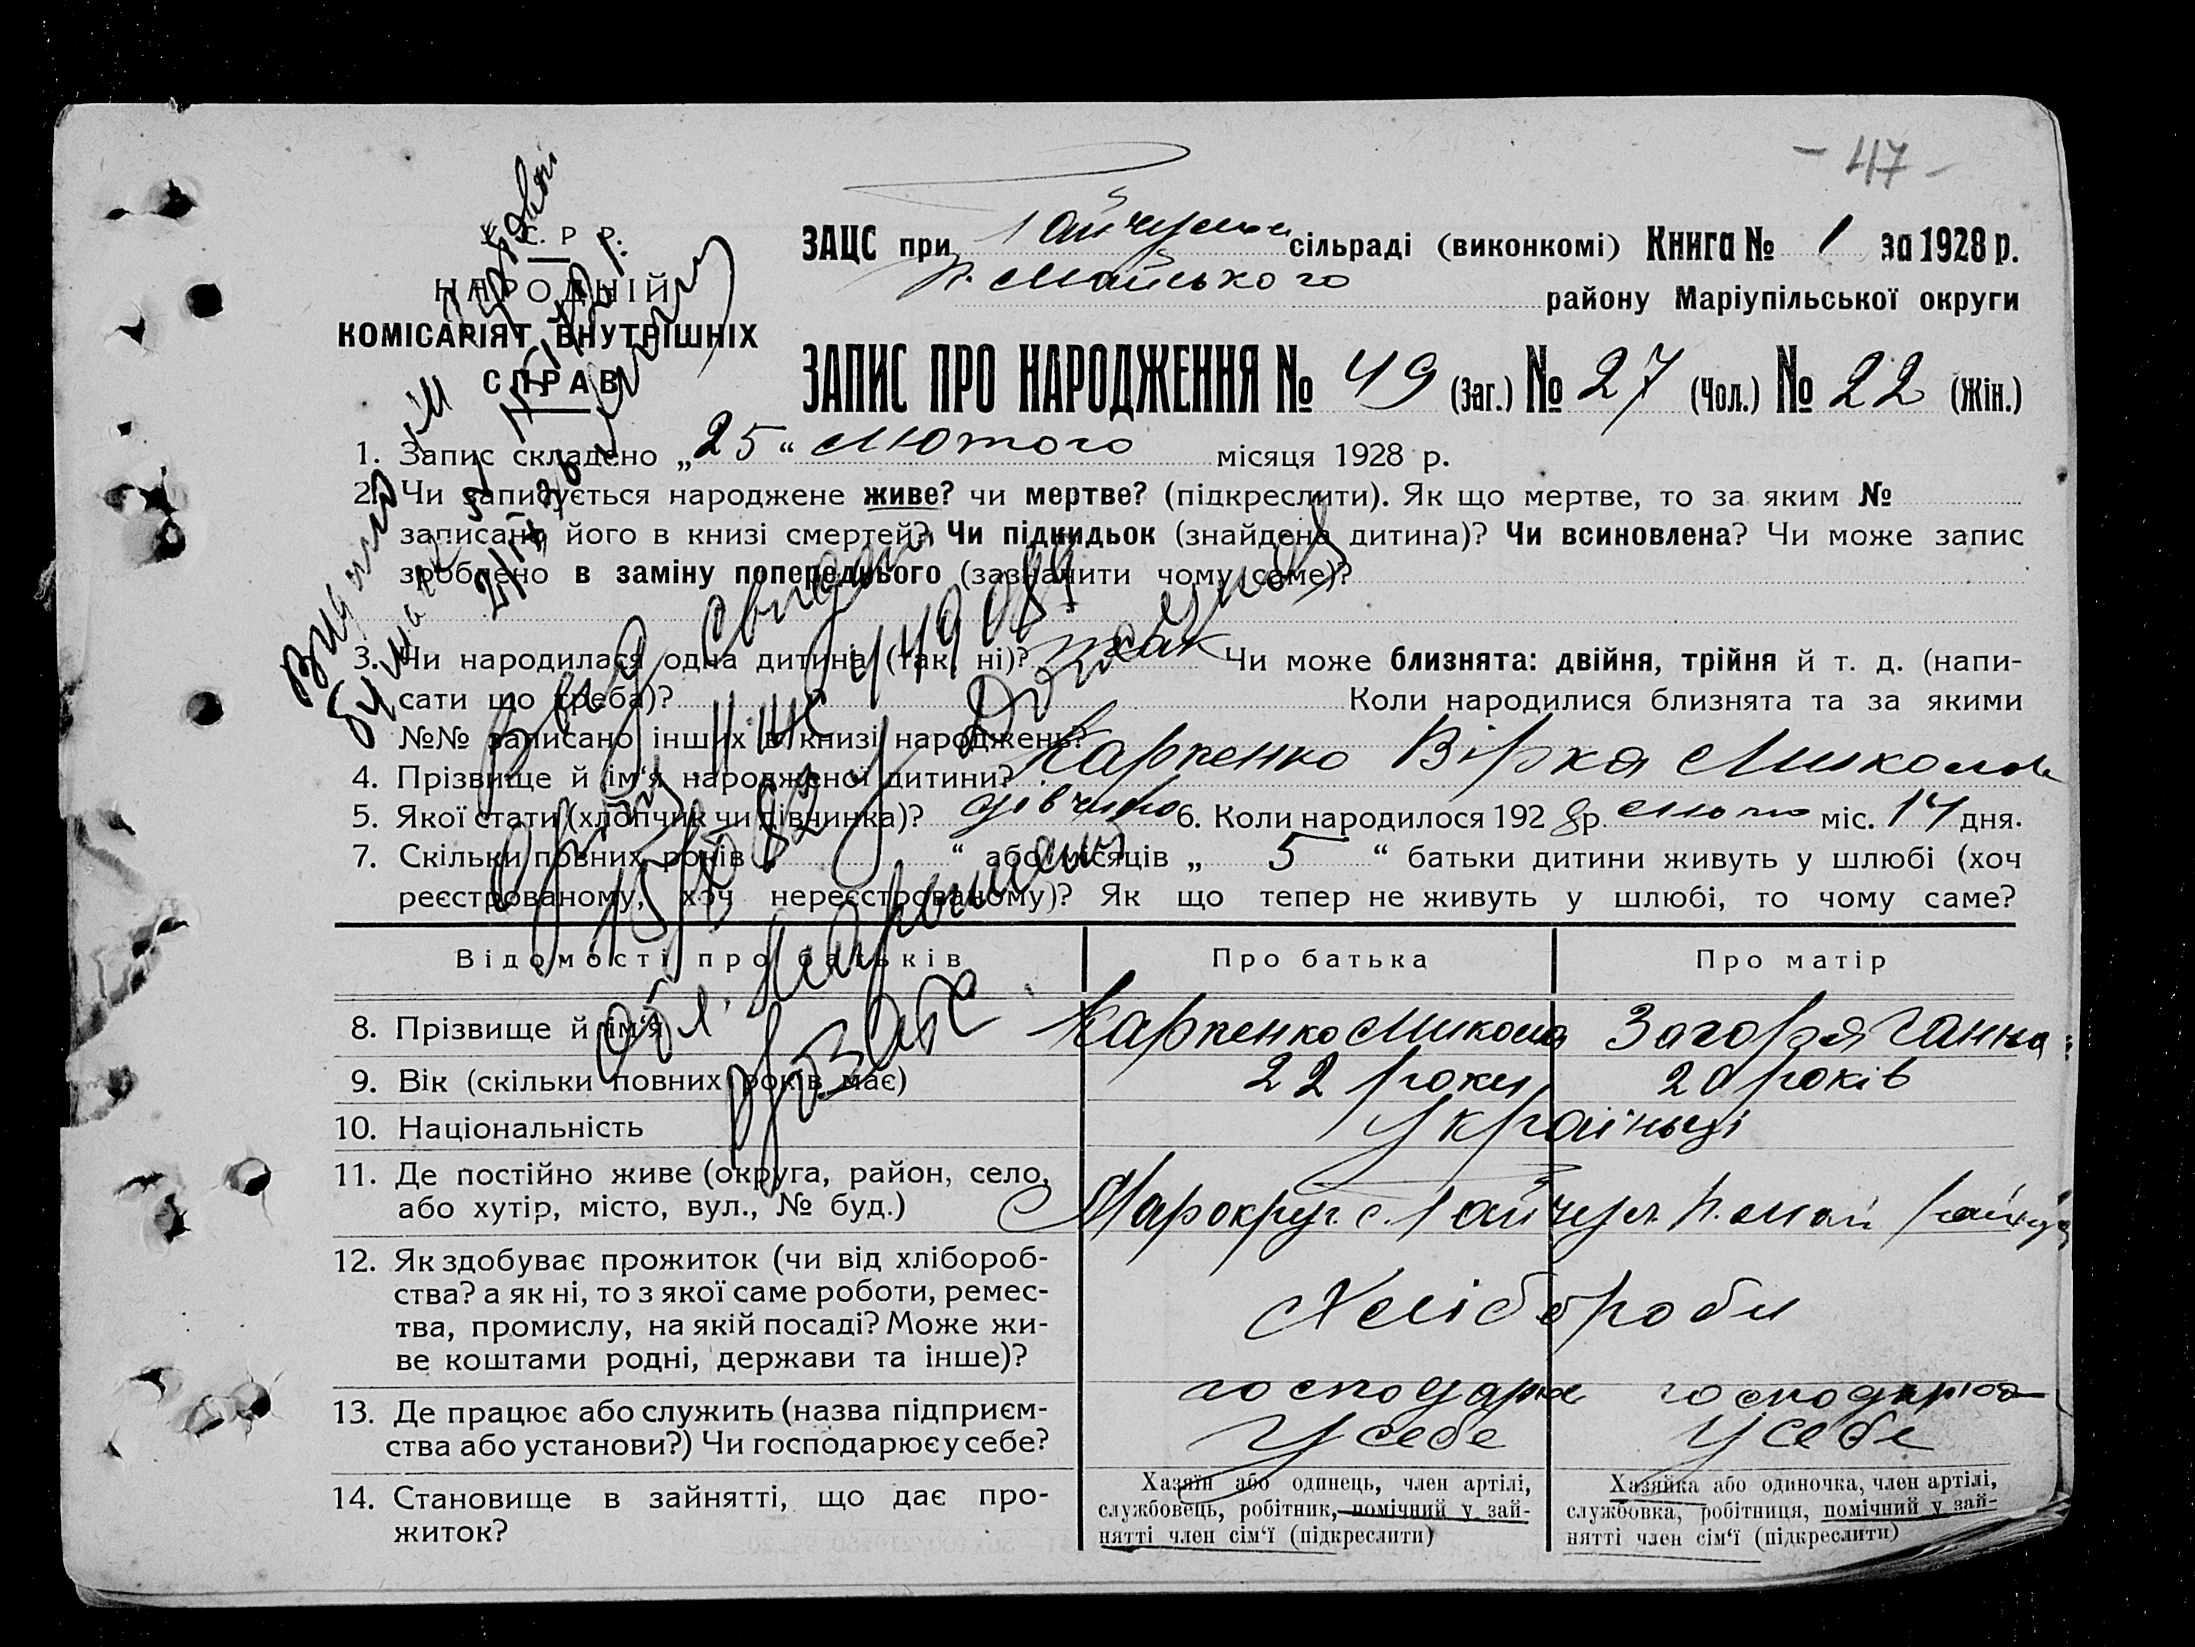 - 47 -
У. С. Р. Р.
НАРОДНІЙ
КОМІСАРІЯТ ВНУТРІШНІХ
СПРАВ
ЗАЦС при Гайчулські сільраді (виконкомі) Книга № 1 за 1928 р.
П. Майського району Маріупільської округи
ЗАПИС ПРО НАРОДЖЕННЯ № 49 (Заг.) № 27 (Чол.) № 22 (Жін.)
1. Запис складено „25“ Лютого місяця 1928 р.
2. Чи записується народжене живе? чи мертве? (підкреслити). Як що мертве, то за яким №
записано його в книзі смертей? Чи підкидьок (знайдена дитина)? Чи всиновлена? Чи може запис
зроблено в заміну попереднього (зазначити чому саме)?
3. Чи народилася одна дитина (так, ні)? так Чи може близнята: двійня, трійня й т. д. (напи-
сати що треба)? Коли народилися близнята та за якими
№№ записано інших в книзі народжень?
4. Прізвище й ім‘я народженої дитини? Карпенко Вірка Микола
5. Якої стати (хлопчик чи дівчинка)? дівчина 6. Коли народилося 1928 р. люто міс. 14 дня.
7. Скільки повних років „ “ або місяців „ 5 “ батьки дитини живуть у шлюбі (хоч
реєстрованому, хоч нереєстрованому)? Як що тепер не живуть у шлюбі, то чому саме?
Відомості про батьків Про батька Про матір
8. Прізвище й ім‘я Карпенко Микола Загорья Ганна
9. Вік (скільки повних років має) 22 роки 20 років
10. Національність Українці
11. Де постійно живе (округа, район, село,
або хутір, місто, вул., № буд.) Марокруг. с. Гайчул П. Май
12. Як здобуває прожиток (чи від хлібороб-
ства? а як ні, то з якої саме роботи, ремес-
тва, промислу, на якій посаді? Може жи-
ве коштами родні, держави та інше)? Хлібороби
13. Де працює або служить (назва підприєм- господарює господарює
ства або установи?) Чи господарює у себе? У себе У себе
14. Становище в зайнятті, що дає про-
житок?
Хазяїн або одинець, член артілі,
службовець, робітник, помічний у зай-
нятті член сім‘ї (підкреслити)
Хазяйка або одиночка, член артілі,
службовка, робітниця, помічний у зай-
нятті член сім‘ї (підкреслити)